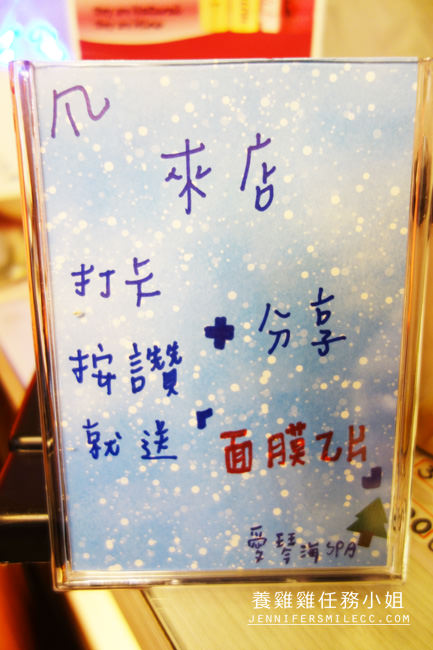 凡
來店
打卡
按讚 + 分享
就送「面膜乙片」
愛琴海 SPA
養雞雞任務小姐
JENNIFERSMILECC.COM